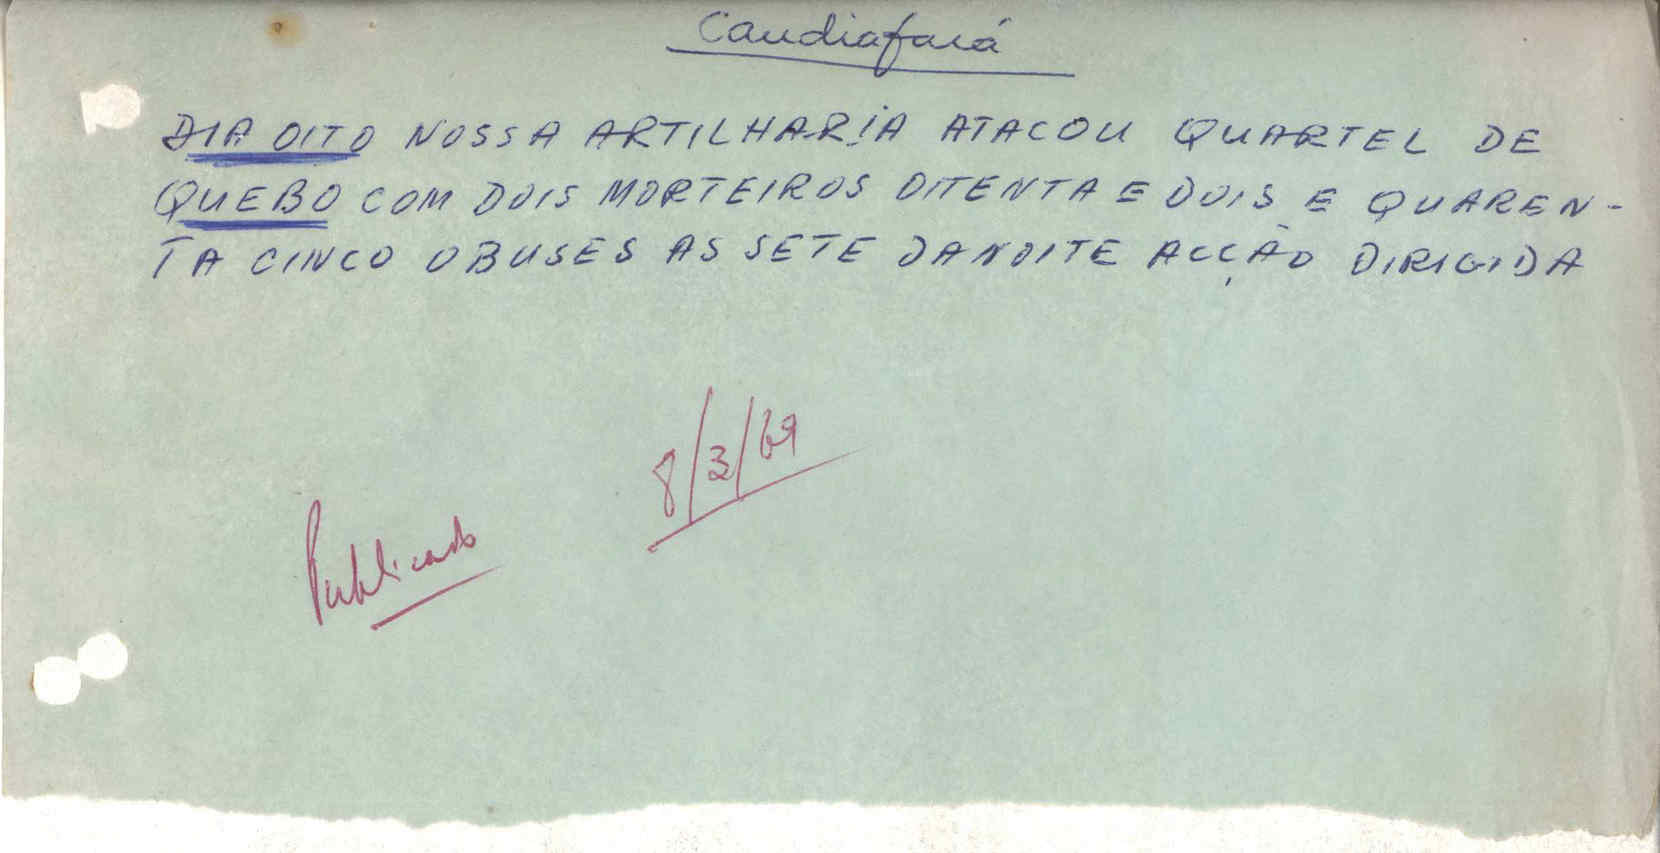 Candiafará
DIA OITO NOSSA ARTILHARIA ATACOU QUARTEL DE
QUEBO COM DOIS MORTEIROS OITENTA E DOIS E QUAREN-
TA CINCO OBUSES AS SETE DANOITE ACÇÃO DIRIGIDA
8/3/69
Publicado